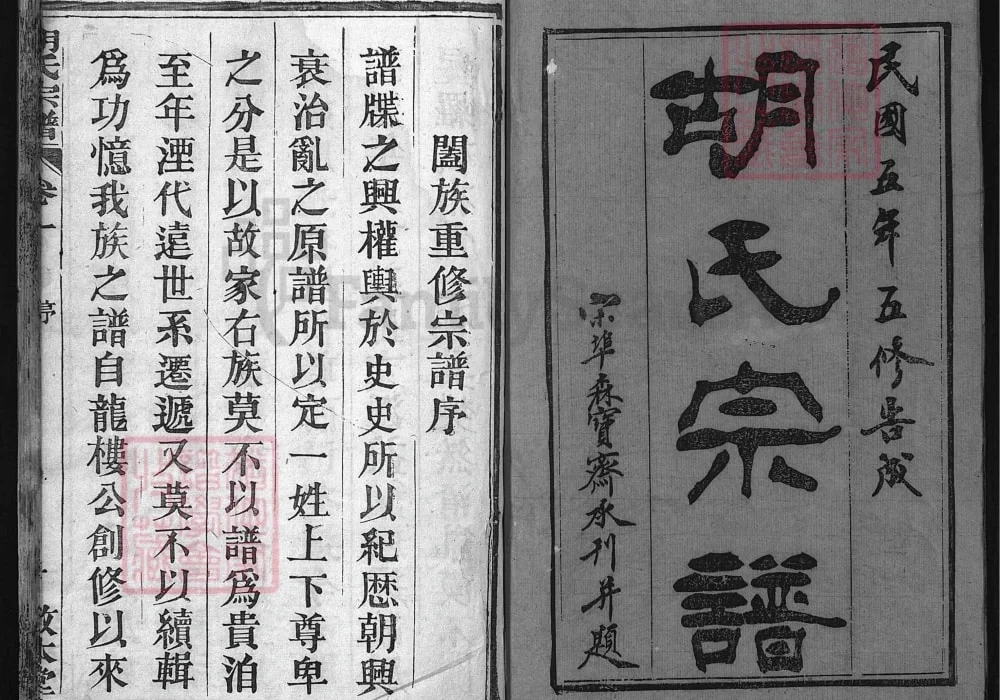 民國五年五修告成
胡氏宗譜
埠森寶齋承刊并題
闔族重修宗譜序
譜牒之興權輿於史史所以紀歷朝興
衰治亂之原譜所以定一姓上下尊卑
之分是以故家右族莫不以譜爲貴洎
至年湮代遠世系遷遞又莫不以續輯
爲功憶我族之譜自龍樓公創修以來
胡氏宗譜 卷一 序 一 敬本堂